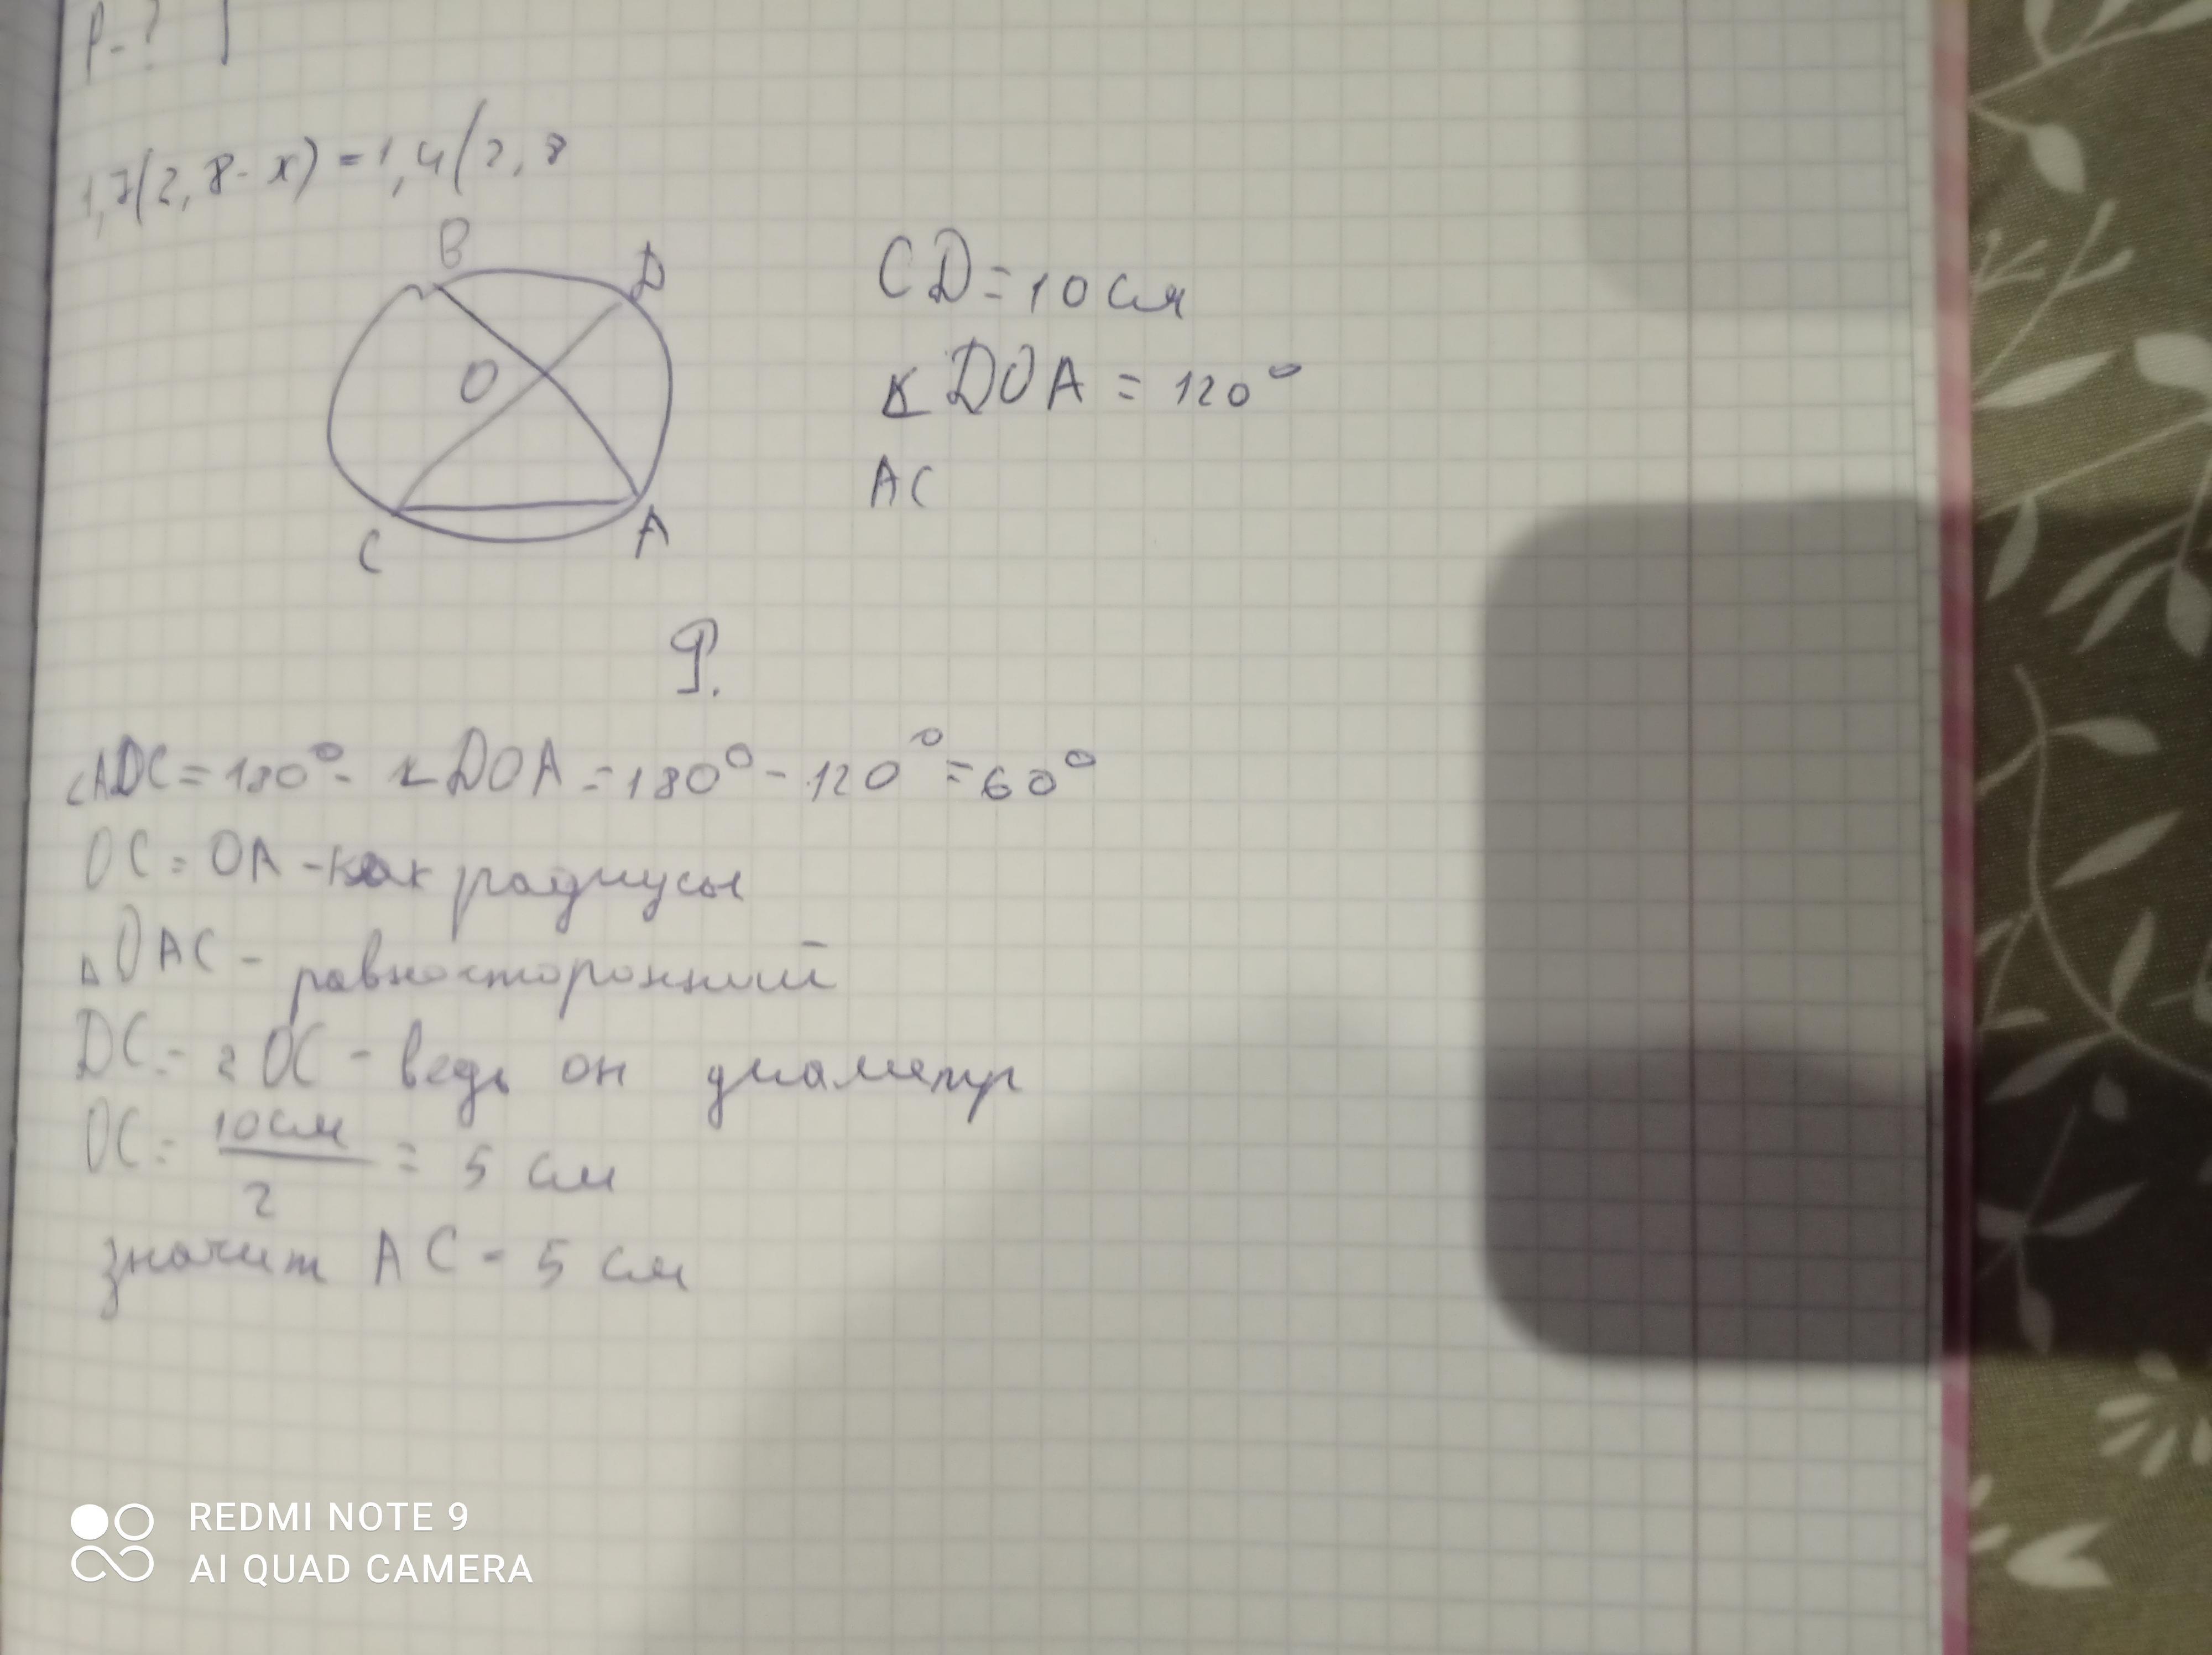 P-?
1,7(2,8-x)=1,4(2,8
B
D
O
C
A
CD=10см
∠DOA = 120°
AC
Р.
∠ADC=180°-∠DOA=180°-120°=60°
OC=OA-как радиусы
△OAC-равносторонний
DC=2OC-ведь он диаметр
OC=10см/2=5 см
значит AC-5 см
REDMI NOTE 9
AI QUAD CAMERA